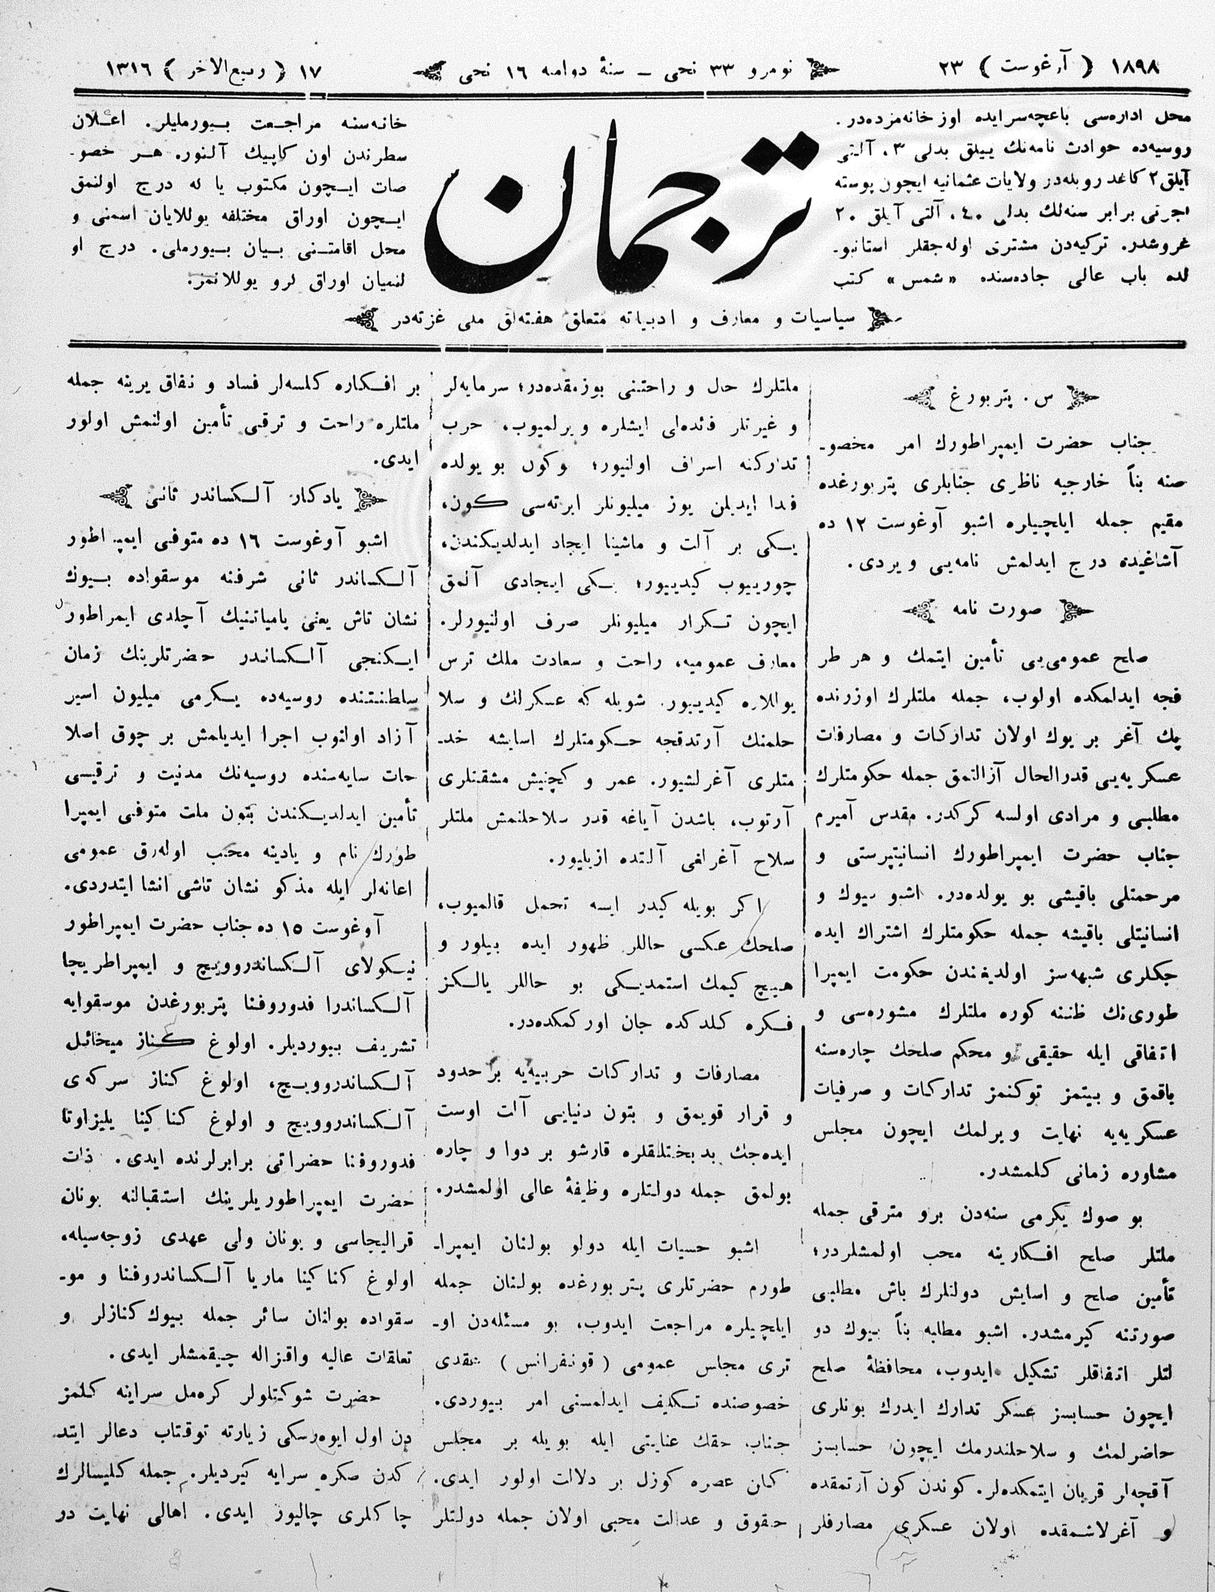 ١٨٩٨ ( آوغوست ) ٢٣
نومرو ٣٣ نجی ـ سنهٔ دوامه ١٦ نجی
١٧ ( ربیع الاخر ) ١٣١٦
محل اداره‌سی باغچه‌سرایده اوز خانه‌مزده‌در.
روسیه‌ده حوادث نامه‌نك ییللق بدلی ٣، آلتی
آیلق ٢ كاغد روبله‌در ولایات عثمانیه ایچون پوسته
اجرتی برابر سنه‌لك بدلی ٤٠، آلتی آیلق ٢٠
غروشدر. تركیه‌دن مشتری اوله‌جقلر استانبو-
لده باب عالی جاده‌سنده «شمس» كتب
خانه‌سنه مراجعت بیورملیلر. اعلان
سطرندن اون كاپیك آلنور. هر خصو-
صات ایچون مكتوب یا له درج اولنمق
ایچون اوراق مختلفه یوللایان اسمنی و
محل اقامتنی بیان بیورملی. درج او
لنمیان اوراق كرو یوللانمز.
ترجمان
سیاسیات و معارف و ادبیاته متعلق هفته‌لق ملی غزته‌در
س. پتربورغ
جناب حضرت ایمپراطورك امر مخصو-
صنه بناً خارجیه ناظری جنابلری پتربورغده
مقیم جمله ایلچیلره اشبو آوغوست ١٢ ده
آشاغیده درج ایدلمش نامه‌یی ویردی.
صورت نامه
صلح عمومی‌یی تأمین ایتمك و هر طر
فجه ایدلمكده اولوب، جمله ملتلرك اوزرنده
پك آغر بر یوك اولان تداركات و مصارفات
عسكریه‌یی قدر الحال آزالتمق جمله حكومتلرك
مطلبی و مرادی اولسه كركدر. مقدس آمیرم
جناب حضرت ایمپراطورك انسانیتپرستی و
مرحمتلی باقیشی بو یولده‌در. اشبو بیوك و
انسانیتلی باقیشه جمله حكومتلرك اشتراك ایده
جكلری شبهه‌سز اولدیغندن حكومت ایمپرا
طوری‌نك ظننه كوره ملتلرك مشوره‌سی و
اتفاقی ایله حقیقی و محكم صلحك چاره‌سنه
باقمق و بیتمز توكنمز تداركات و صرفیات
عسكریه‌یه نهایت ویرلمك ایچون مجلس
مشاوره زمانی كلمشدر.
بو صوك یكرمی سنه‌دن برو مترقی جمله
ملتلر صلح افكارینه محب اولمشلردر؛
تأمین صلح و اسایش دولتلرك باش مطلبی
صورتنه كیرمشدر. اشبو مطلبه بناً بیوك دو
لتلر اتفاقلر تشكیل ایدوب، محافظهٔ صلح
ایچون حسابسز عسكر تدارك ایدرك بونلری
حاضرلمك و سلاحلندرمك ایچون حسابسز
آقچه‌لر قربان ایتمكده‌لر. كوندن كون آرتمقده
و آغرلاشمقده اولان عسكری مصارفلر
ملتلرك حال و راحتنی بوزمقده‌در؛ سرمایه‌لر
و غیرتلر فائده‌لی ایشلره ویرلمیوب، حرب
تداركنه اسراف اولنیور؛ بوكون بو یولده
فدا ایدیلن یوز میلیونلر ایرته‌سی كون،
یكی بر آلت و ماشینا ایجاد ایدلدیكندن،
چورییوب كیدییور؛ یكی ایجادی آلمق
ایچون تكرار میلیونلر صرف اولنیورلر.
معارف عمومیه، راحت و سعادت ملك ترس
یوللاره كیدییور. شویله كه عسكرلك و سلا
حلمنك آرتدقجه حكومتلرك اسایشه خد-
متلری آغرلشیور. عمر و كچنیش مشقتلری
آرتوب، باشدن آیاغه قدر سلاحلنمش ملتلر
سلاح آغرلغی آلتده ازیلیور.
اكر بویله كیدر ایسه تحمل قالمیوب،
صلحك عكسی حاللر ظهور ایده بیلور و
هیچ كیمك استمدیكی بو حاللر یالكز
فكره كلدكده جان اوركمكده‌در.
مصارفات و تداركات حربیه‌یه بر حدود
و قرار قویمق و بتون دنیایی آلت اوست
ایده‌جك بدبختلقلره قارشو بر دوا و چاره
بولمق جمله دولتلره وظیفهٔ عالی اولمشدر.
اشبو حسیات ایله دولو بولنان ایمپرا-
طورم حضرتلری پتربورغده بولنان جمله
ایلچیلره مراجعت ایدوب، بو مسئله‌دن او-
تری مجلس عمومی (قونفرانس) عقدی
خصوصنده تكلیف ایدلمسنی امر بیوردی.
جناب حقك عنایتی ایله بویله بر مجلس
كلان عصره كوزل بر دلالت اولور ایدی.
حقوق و عدالت محبی اولان جمله دولتلر
بر افكاره كلسه‌لر فساد و نفاق یرینه جمله
ملتلره راحت و ترقی تأمین اولنمش اولور
ایدی.
یادكار آلكساندر ثانی
اشبو آوغوست ١٦ ده متوفی ایمپراطور
آلكساندر ثانی شرفنه موسقواده بیوك
نشان تاش یعنی پامیاتنیك آچلدی ایمپراطور
ایكنجی آلكساندر حضرتلرینك زمان
سلطنتنده روسیه‌ده یكرمی میلیون اسیر
آزاد اولنوب اجرا ایدیلمش بر چوق اصلا
حات سایه‌سنده روسیه‌نك مدنیت و ترقیسی
تأمین ایدلدیكندن بتون ملت متوفی ایمپرا
طورك نام و یادینه محب اوله‌رق عمومی
اعانه‌لر ایله مذكو نشان تاشی انشا ایتدردی.
آوغوست ١٥ ده جناب حضرت ایمپراطور
نیكولای آلكساندروویچ و ایمپراطریچا
آلكساندرا فدوروفنا پتربورغدن موسقوایه
تشریف بیوردیلر. اولوغ كناز میخائیل
آلكساندروویچ، اولوغ كناز سركه‌ی
آلكساندروویچ و اولوغ كناكینا یلیزاوتا
فدوروفنا حضراتی برابرلرنده ایدی. ذات
حضرت ایمپراطوریلرینك استقبالنه یونان
قرالیجاسی و یونان ولی عهدی زوجه‌سیله،
اولوغ كناكینا ماریا آلكساندروفنا و مو-
سقواده بولنان سائر جمله بیوك كنازلر و
تعلقات عالیه واقزاله چیقمشلر ایدی.
حضرت شوكتلولر كره‌مل سراینه كلمز
دن اول ایوه‌رسكی زیارته توقتاب دعالر ایتد
كدن صكره سرایه كیردیلر. جمله كلیسالرك
چاكلری چالیور ایدی. اهالی نهایت در